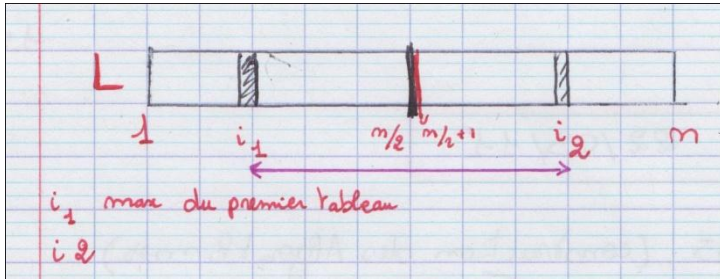 L
1 i1 n/2 n/2+1 i2 n
i1 max du premier tableau
i2